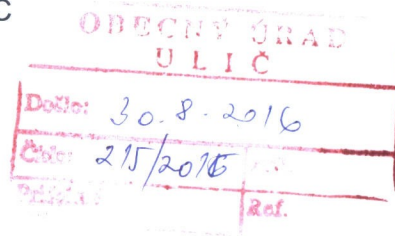 C
OBECNÝ ÚRAD
ULIČ
Došlo: 30.8.2016
Číslo: 215/2016
Ref.